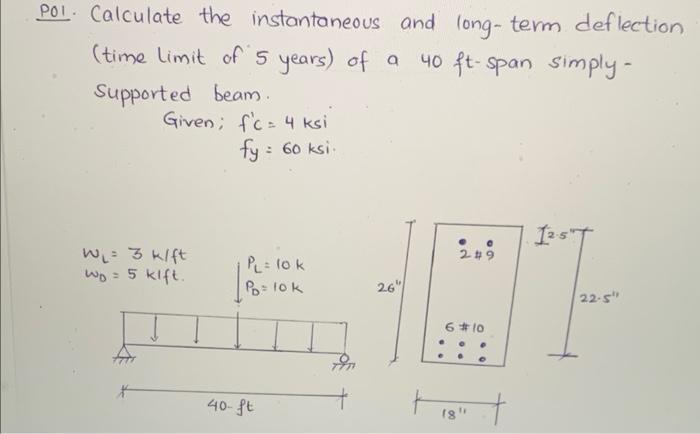 P01. Calculate the instantaneous and long-term deflection
(time limit of 5 years) of a 40 ft-span simply-
Supported beam.
Given; f'c = 4 ksi
fy = 60 ksi.
WL = 3 k/ft
WD = 5 k/ft.
PL = 10 k
PD = 10 k
40-ft
26"
2#9
6 #10
18"
2.5"
22.5"